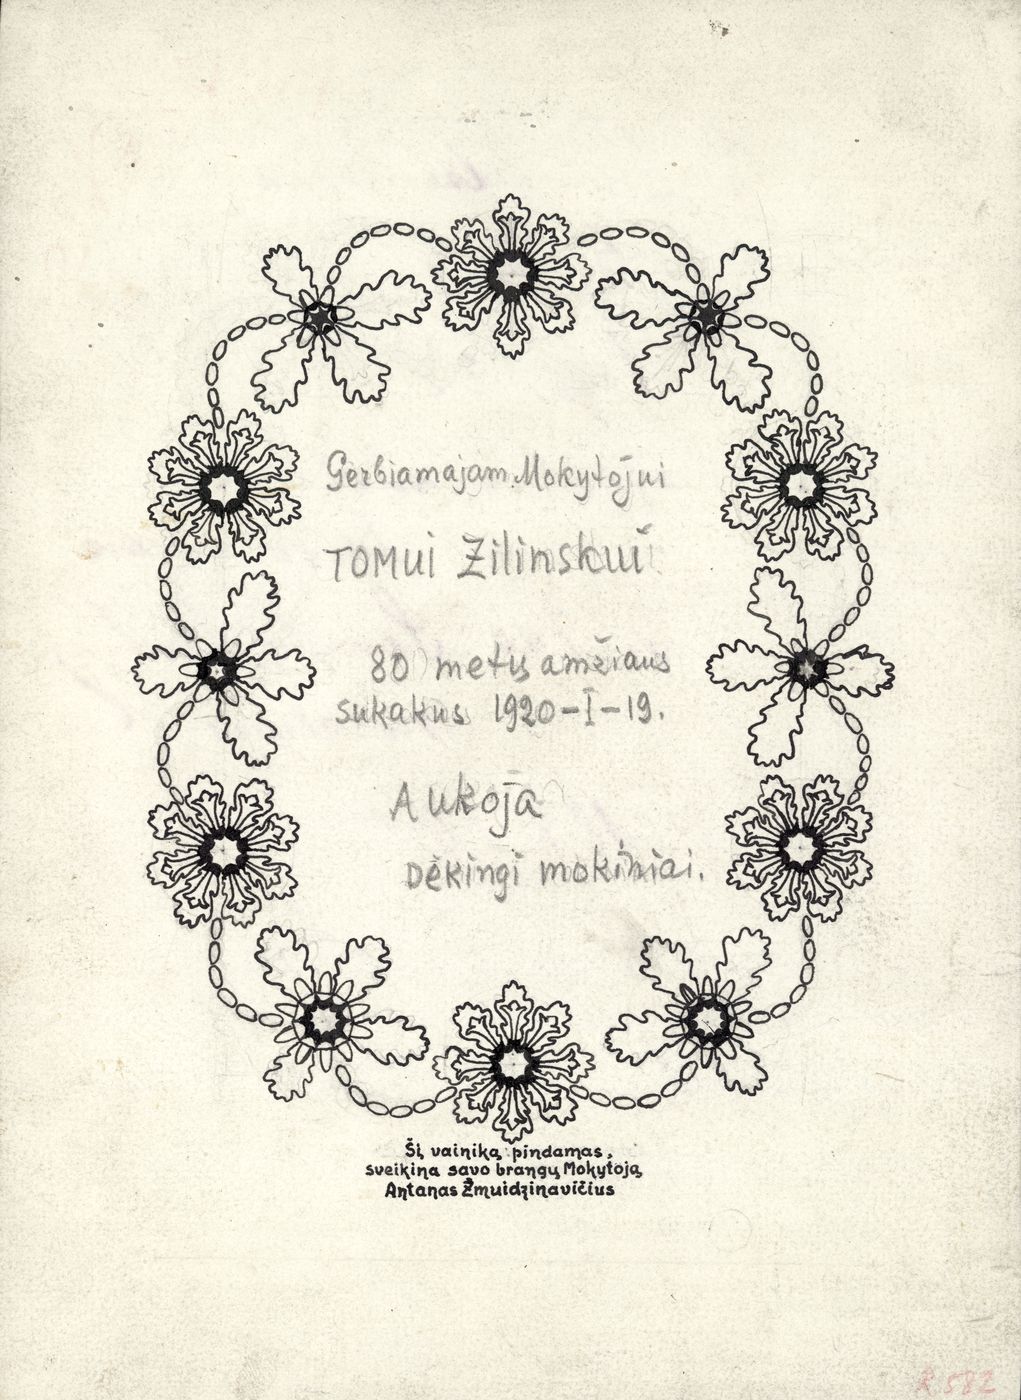 Gerbiamajam Mokytojui
TOMui Žilinskui
80 metų amžiaus
sukakus 1920-I-19.
Aukoja
Dėkingi mokiniai.
Šį vainiką pindamas,
sveikina savo brangų Mokytoją
Antanas Žmuidzinavičius
R 582